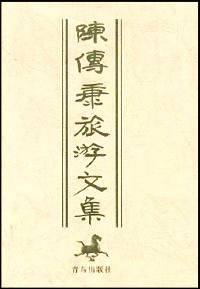 陳傳秉旅游文集
青鸟出版社